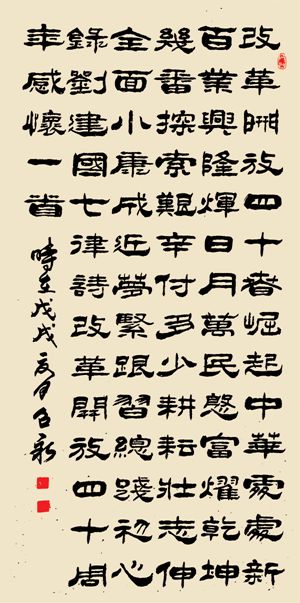 改革開放四十春崛起中華處處新
百業興隆輝日月萬民慇富耀乾坤
幾番探索艱辛付多少耕耘壯志伸
全面小康成近夢緊跟習總踐初心
錄劉建國七律詩改革開放四十周
年感懷一首
時在戊戌